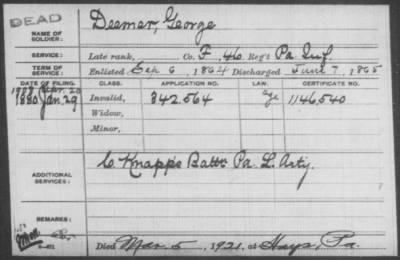 DEAD
NAME OF SOLDIER: Deemer, George
SERVICE: Late rank, Co. F, 46 Reg't Pa. Inf.
TERM OF SERVICE: Enlisted Sep 6, 1864 Discharged June 7, 1865
DATE OF FILING. CLASS. APPLICATION NO. LAW. CERTIFICATE NO.
1880 Jan. 29 Invalid, 342,564 Age 1146,540
Widow,
Minor,
ADDITIONAL SERVICES: C Knapp's Batt'y Pa. L. Arty.
REMARKS:
Died Mar. 5, 1921, at Hays, Pa.